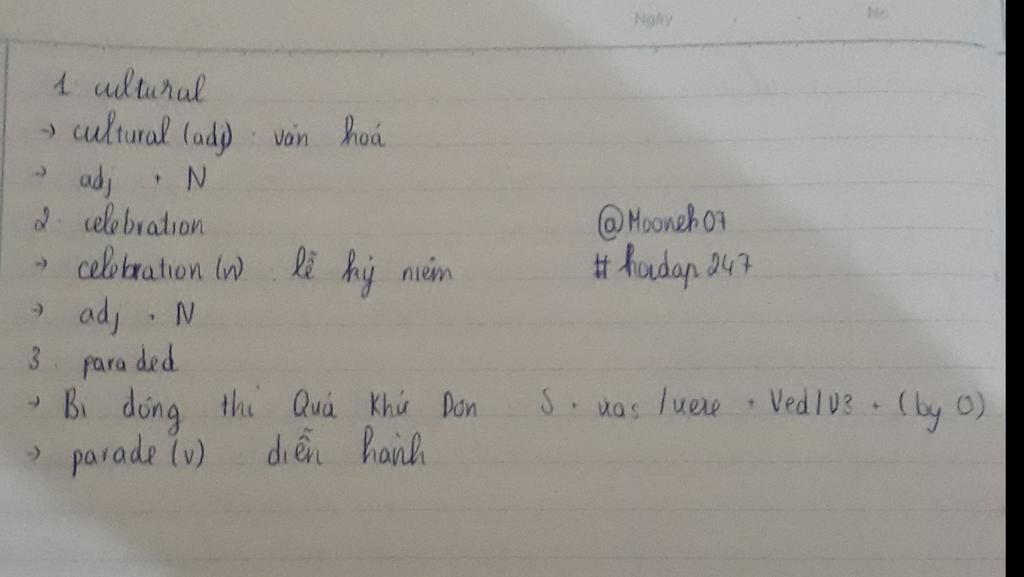 Ngày . . No
1. cultural
→ cultural (adj) : văn hoá
→ adj + N
2. celebration
→ celebration (n) : lễ kỷ niệm
→ adj + N
@Mooneh07
#hoidap247
3. paraded
→ Bị động thì Quá Khứ Đơn : S + was / were + Ved/V3 + (by O)
→ parade (v) : diễn hành